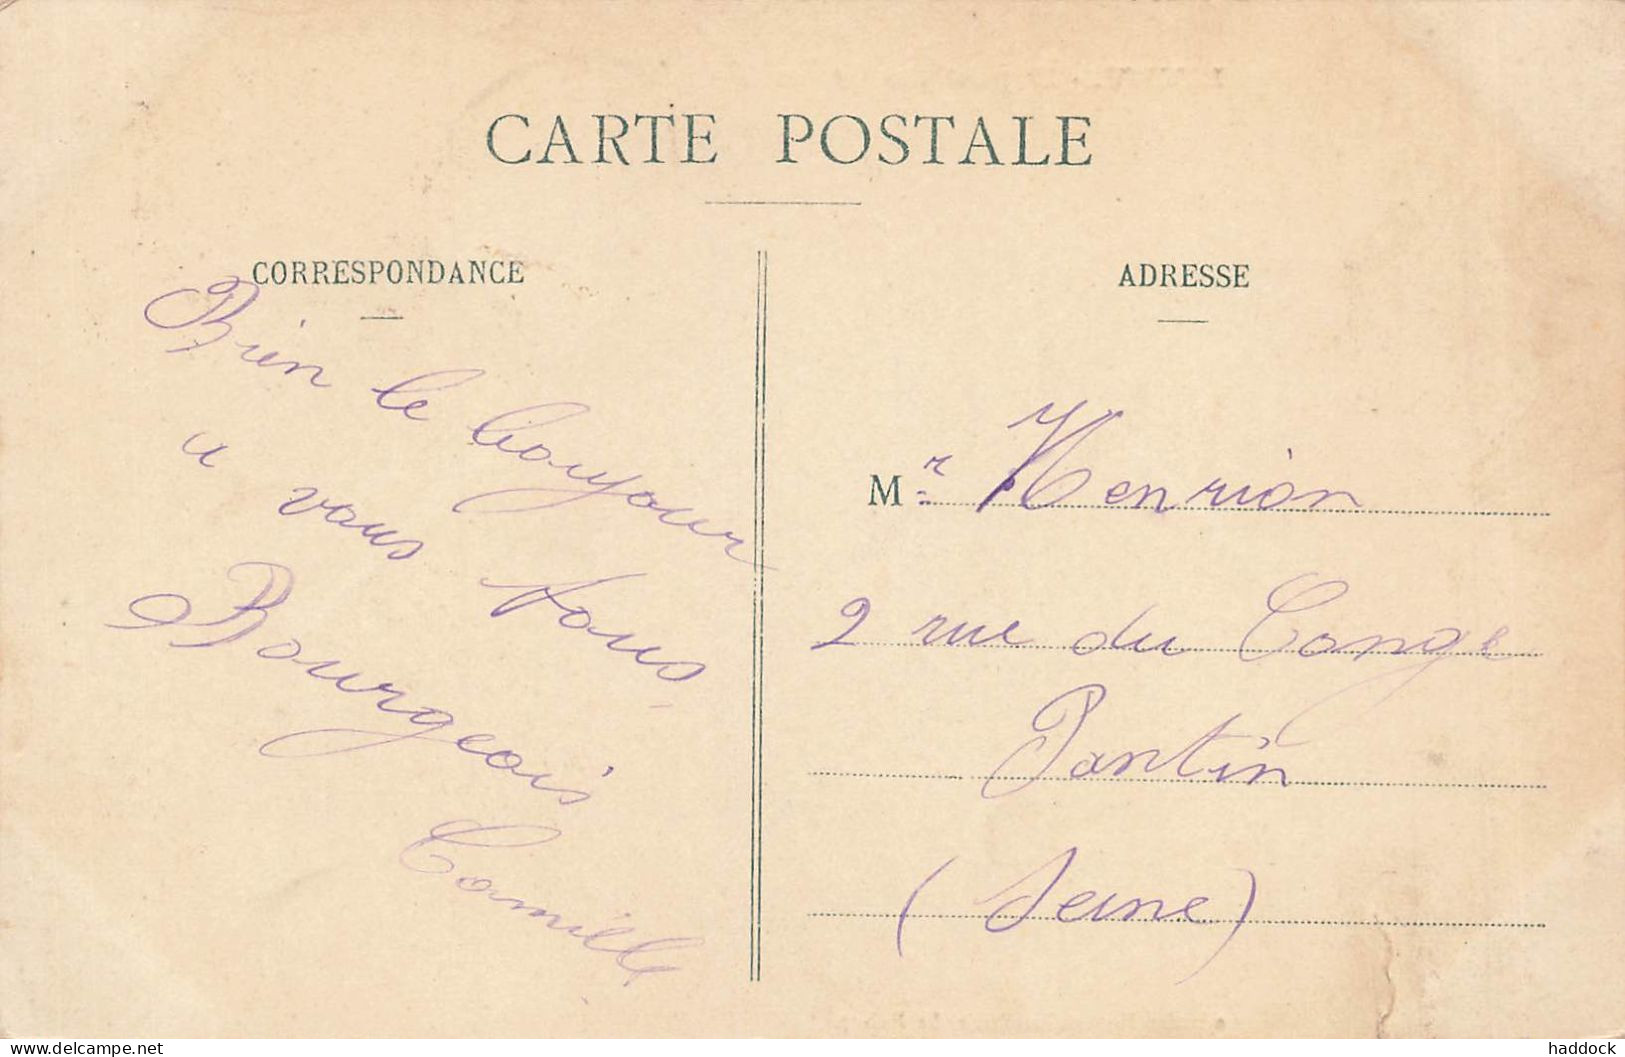 CARTE POSTALE
CORRESPONDANCE
Bien le bonjour
a vous tous
Bourgeois
Camille
ADRESSE
Mr Henrion
2 rue du Congé
Pantin
(Seine)
www.delcampe.net
haddock